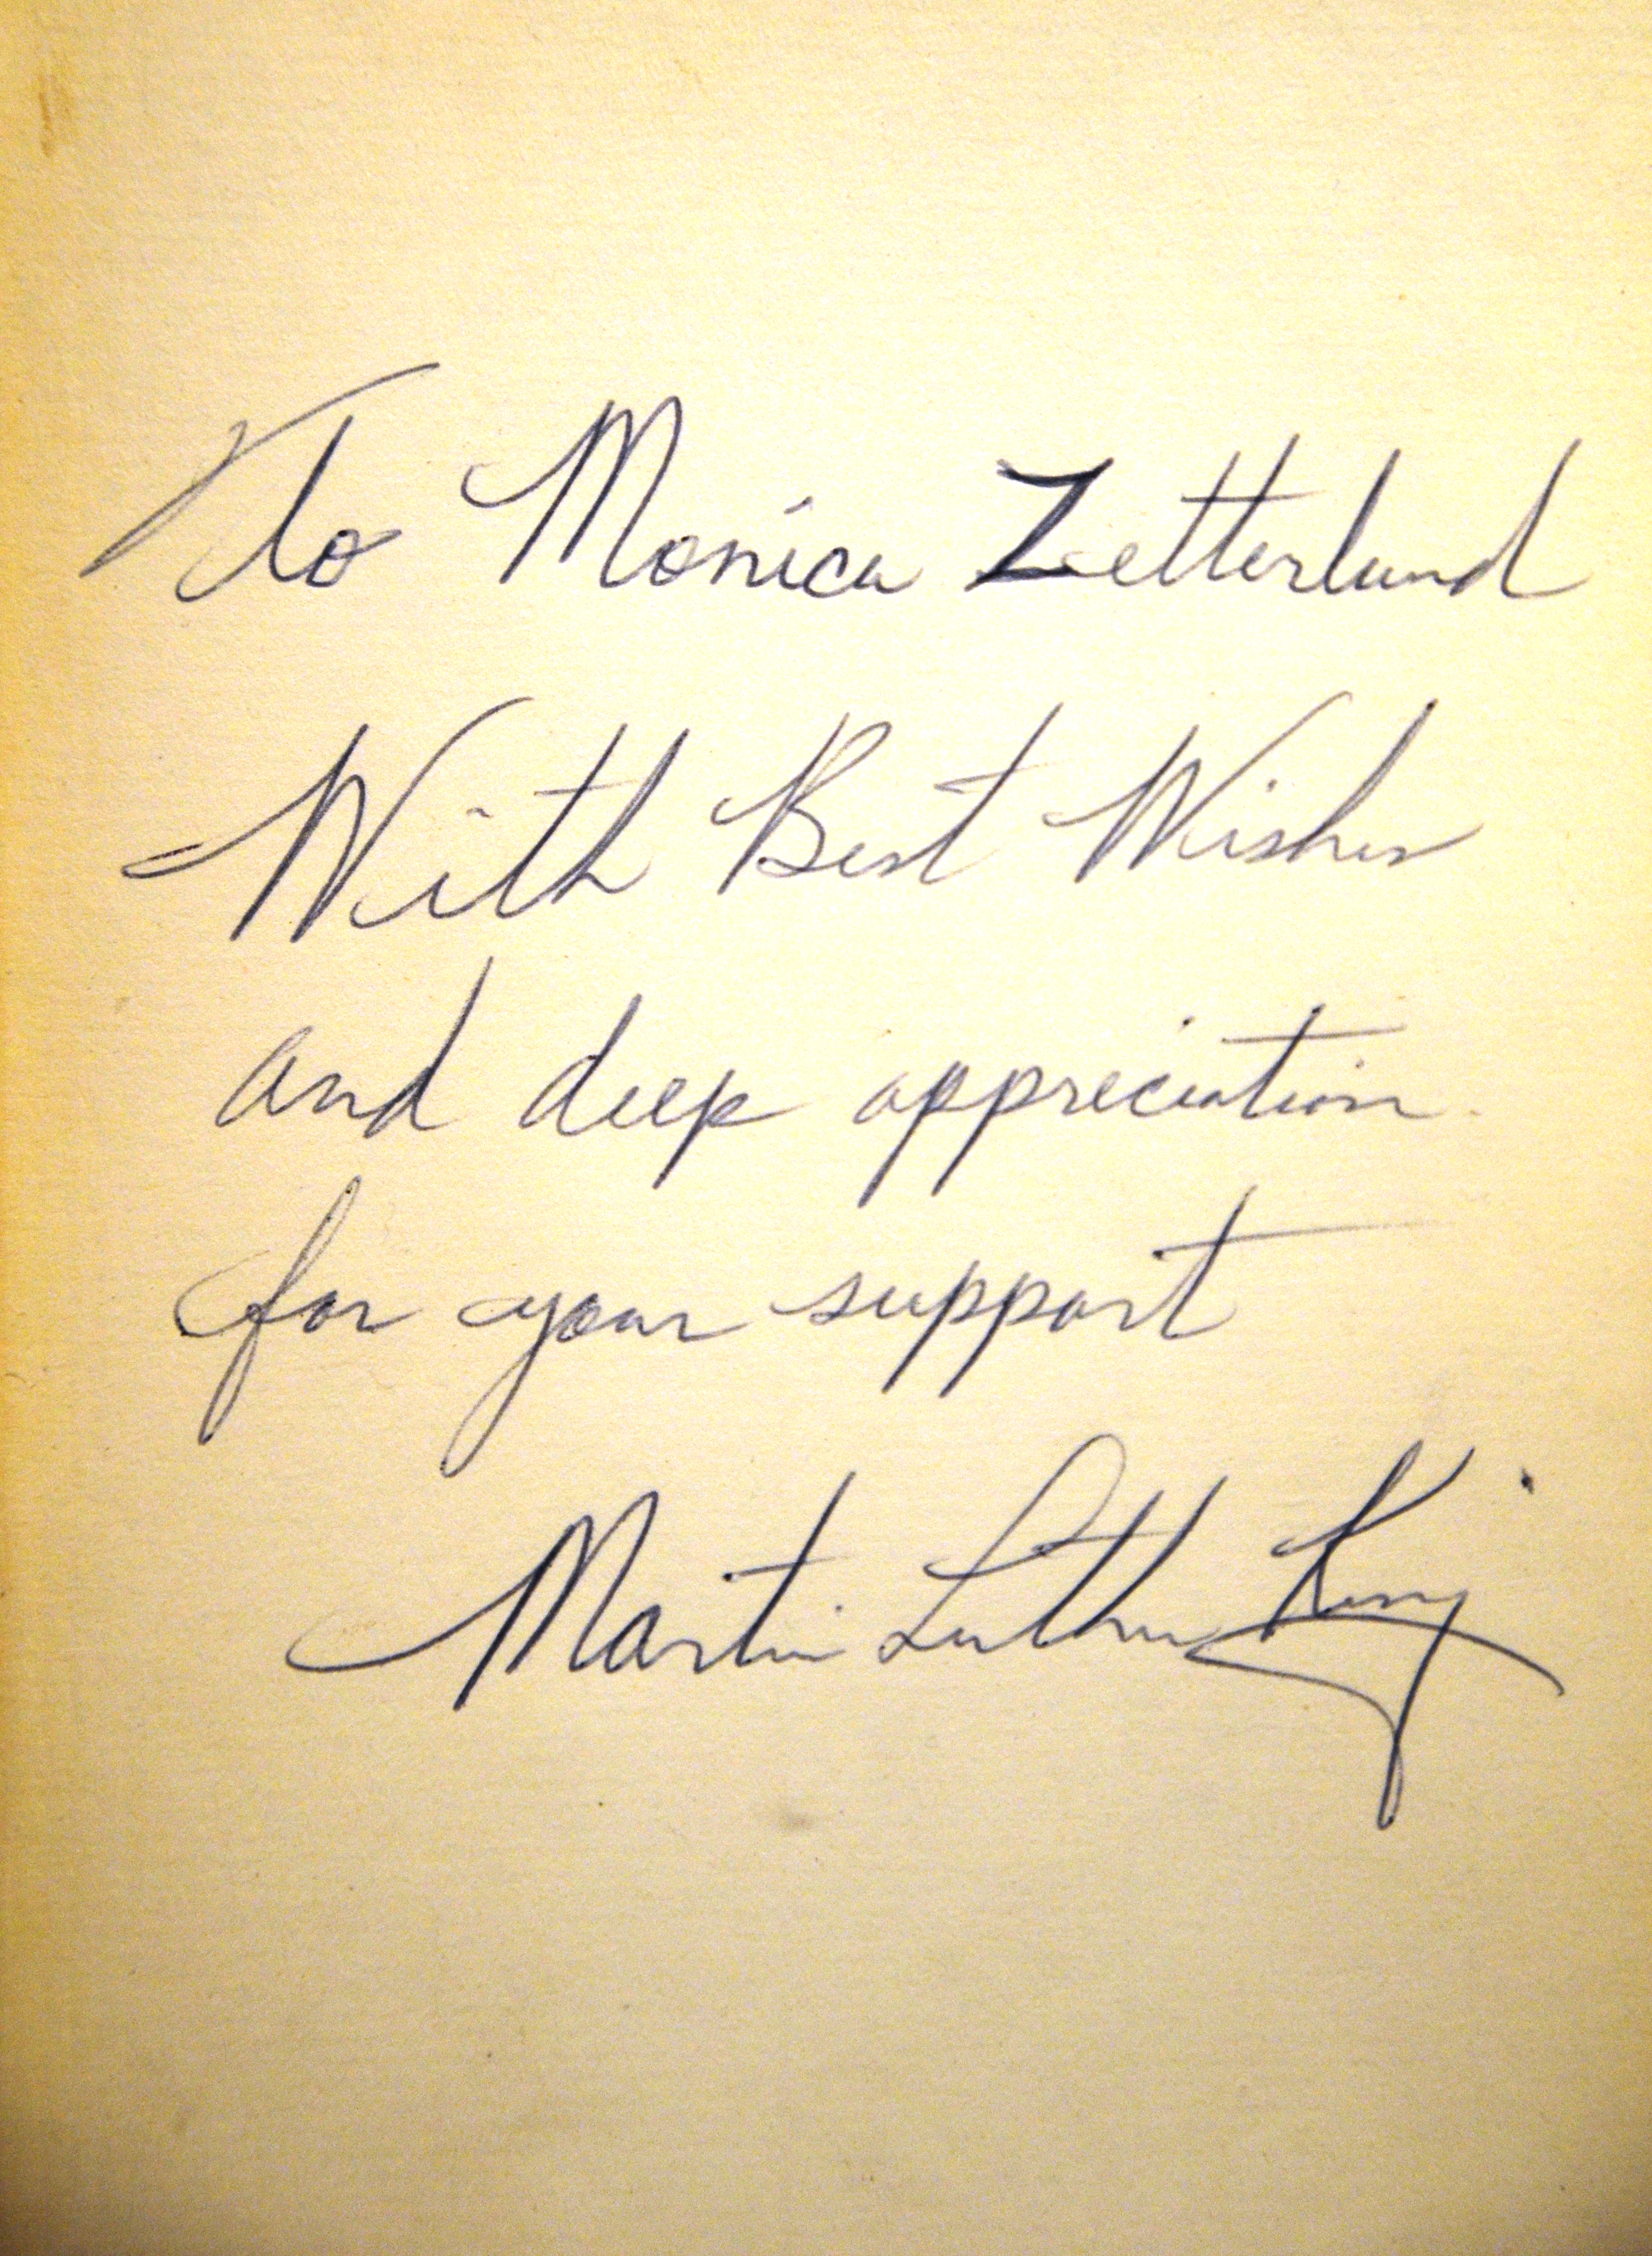 To Monica Zetterlund
With Best Wishes
and deep appreciation
for your support
Martin Luther King